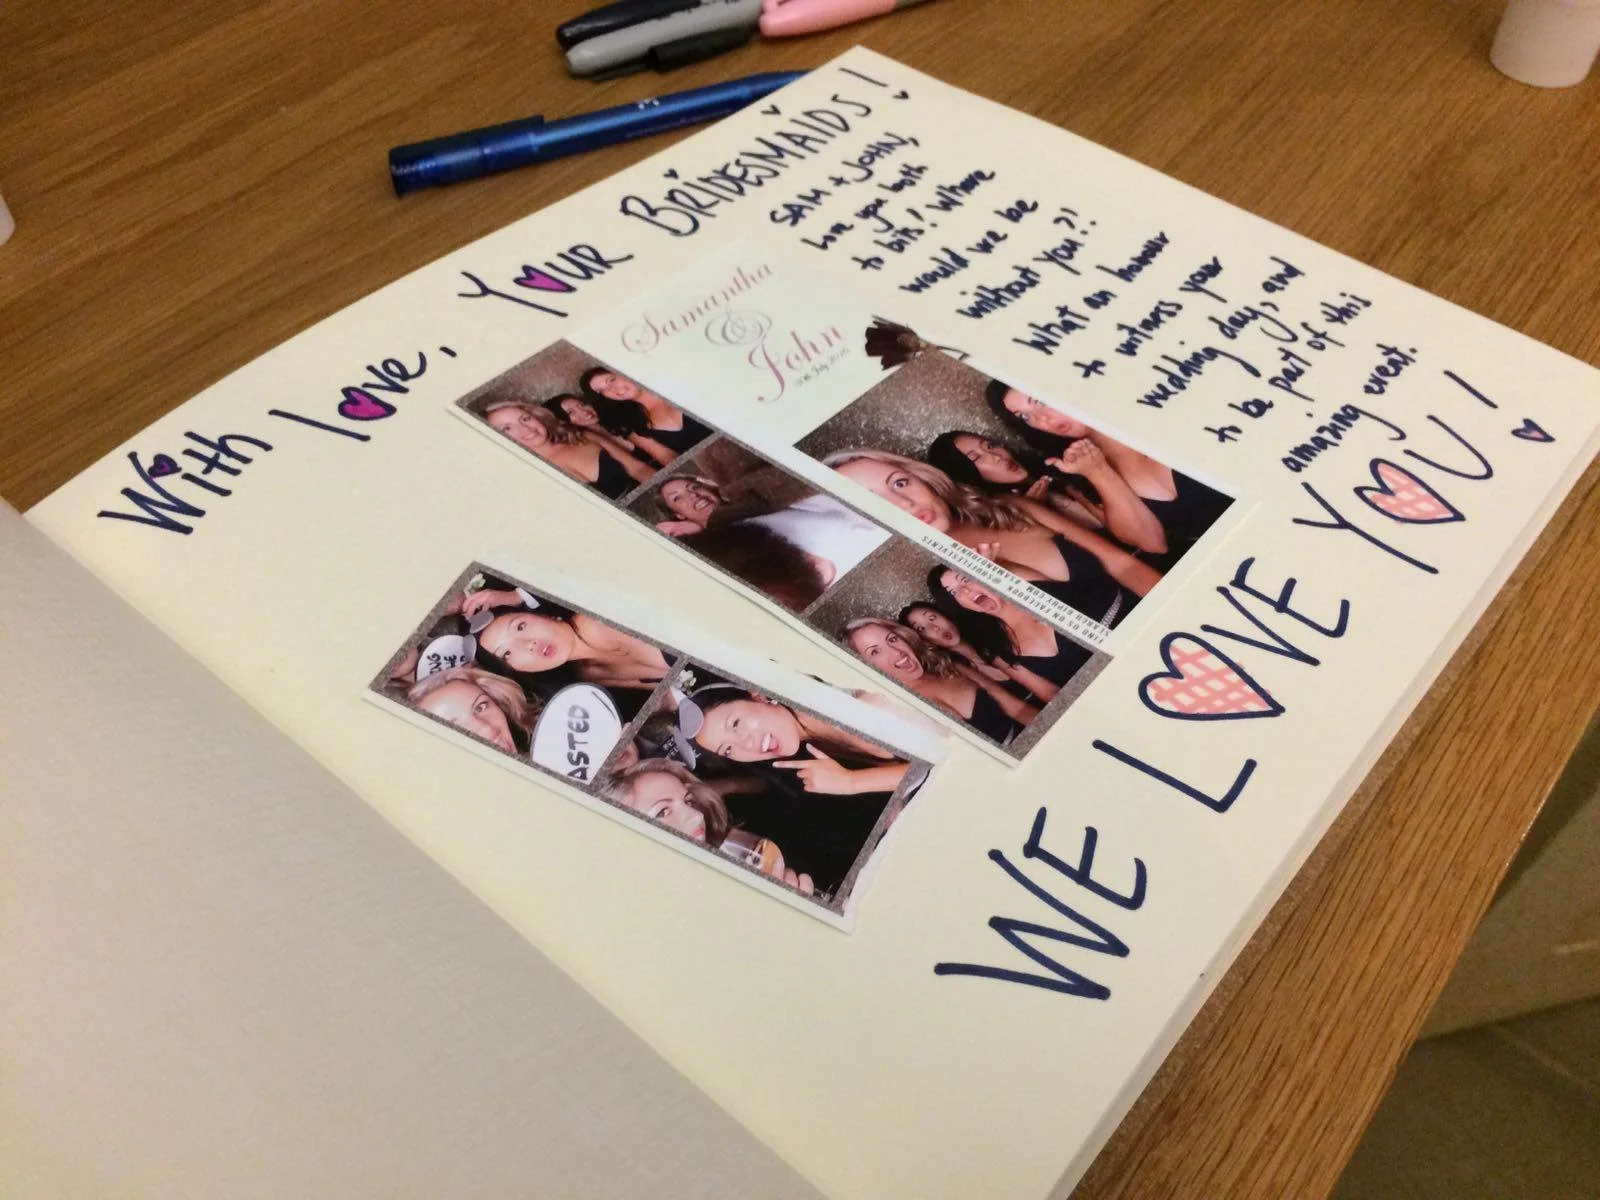 With love, Your BRIDESMAIDS!
SAM + JOHN,
Love you both
to bits! Where
would we be
without you?!
What an honour
to witness your
wedding day, and
to be part of this
amazing event.
WE LOVE YOU!
Samantha
&
John
30th July 2016
FIND US ON FACEBOOK
@SHUFFLESEVENTS
SEARCH GIPHY.COM
#SAMANDJOHNIW
ASTED